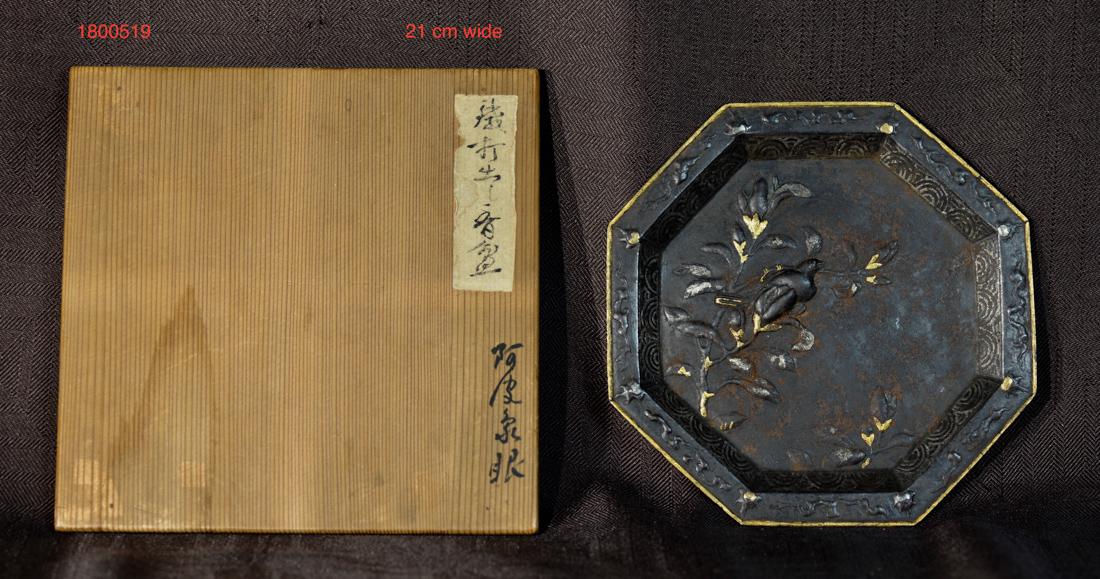 1800519
21 cm wide
鐵打出し香盆
阿波象眼